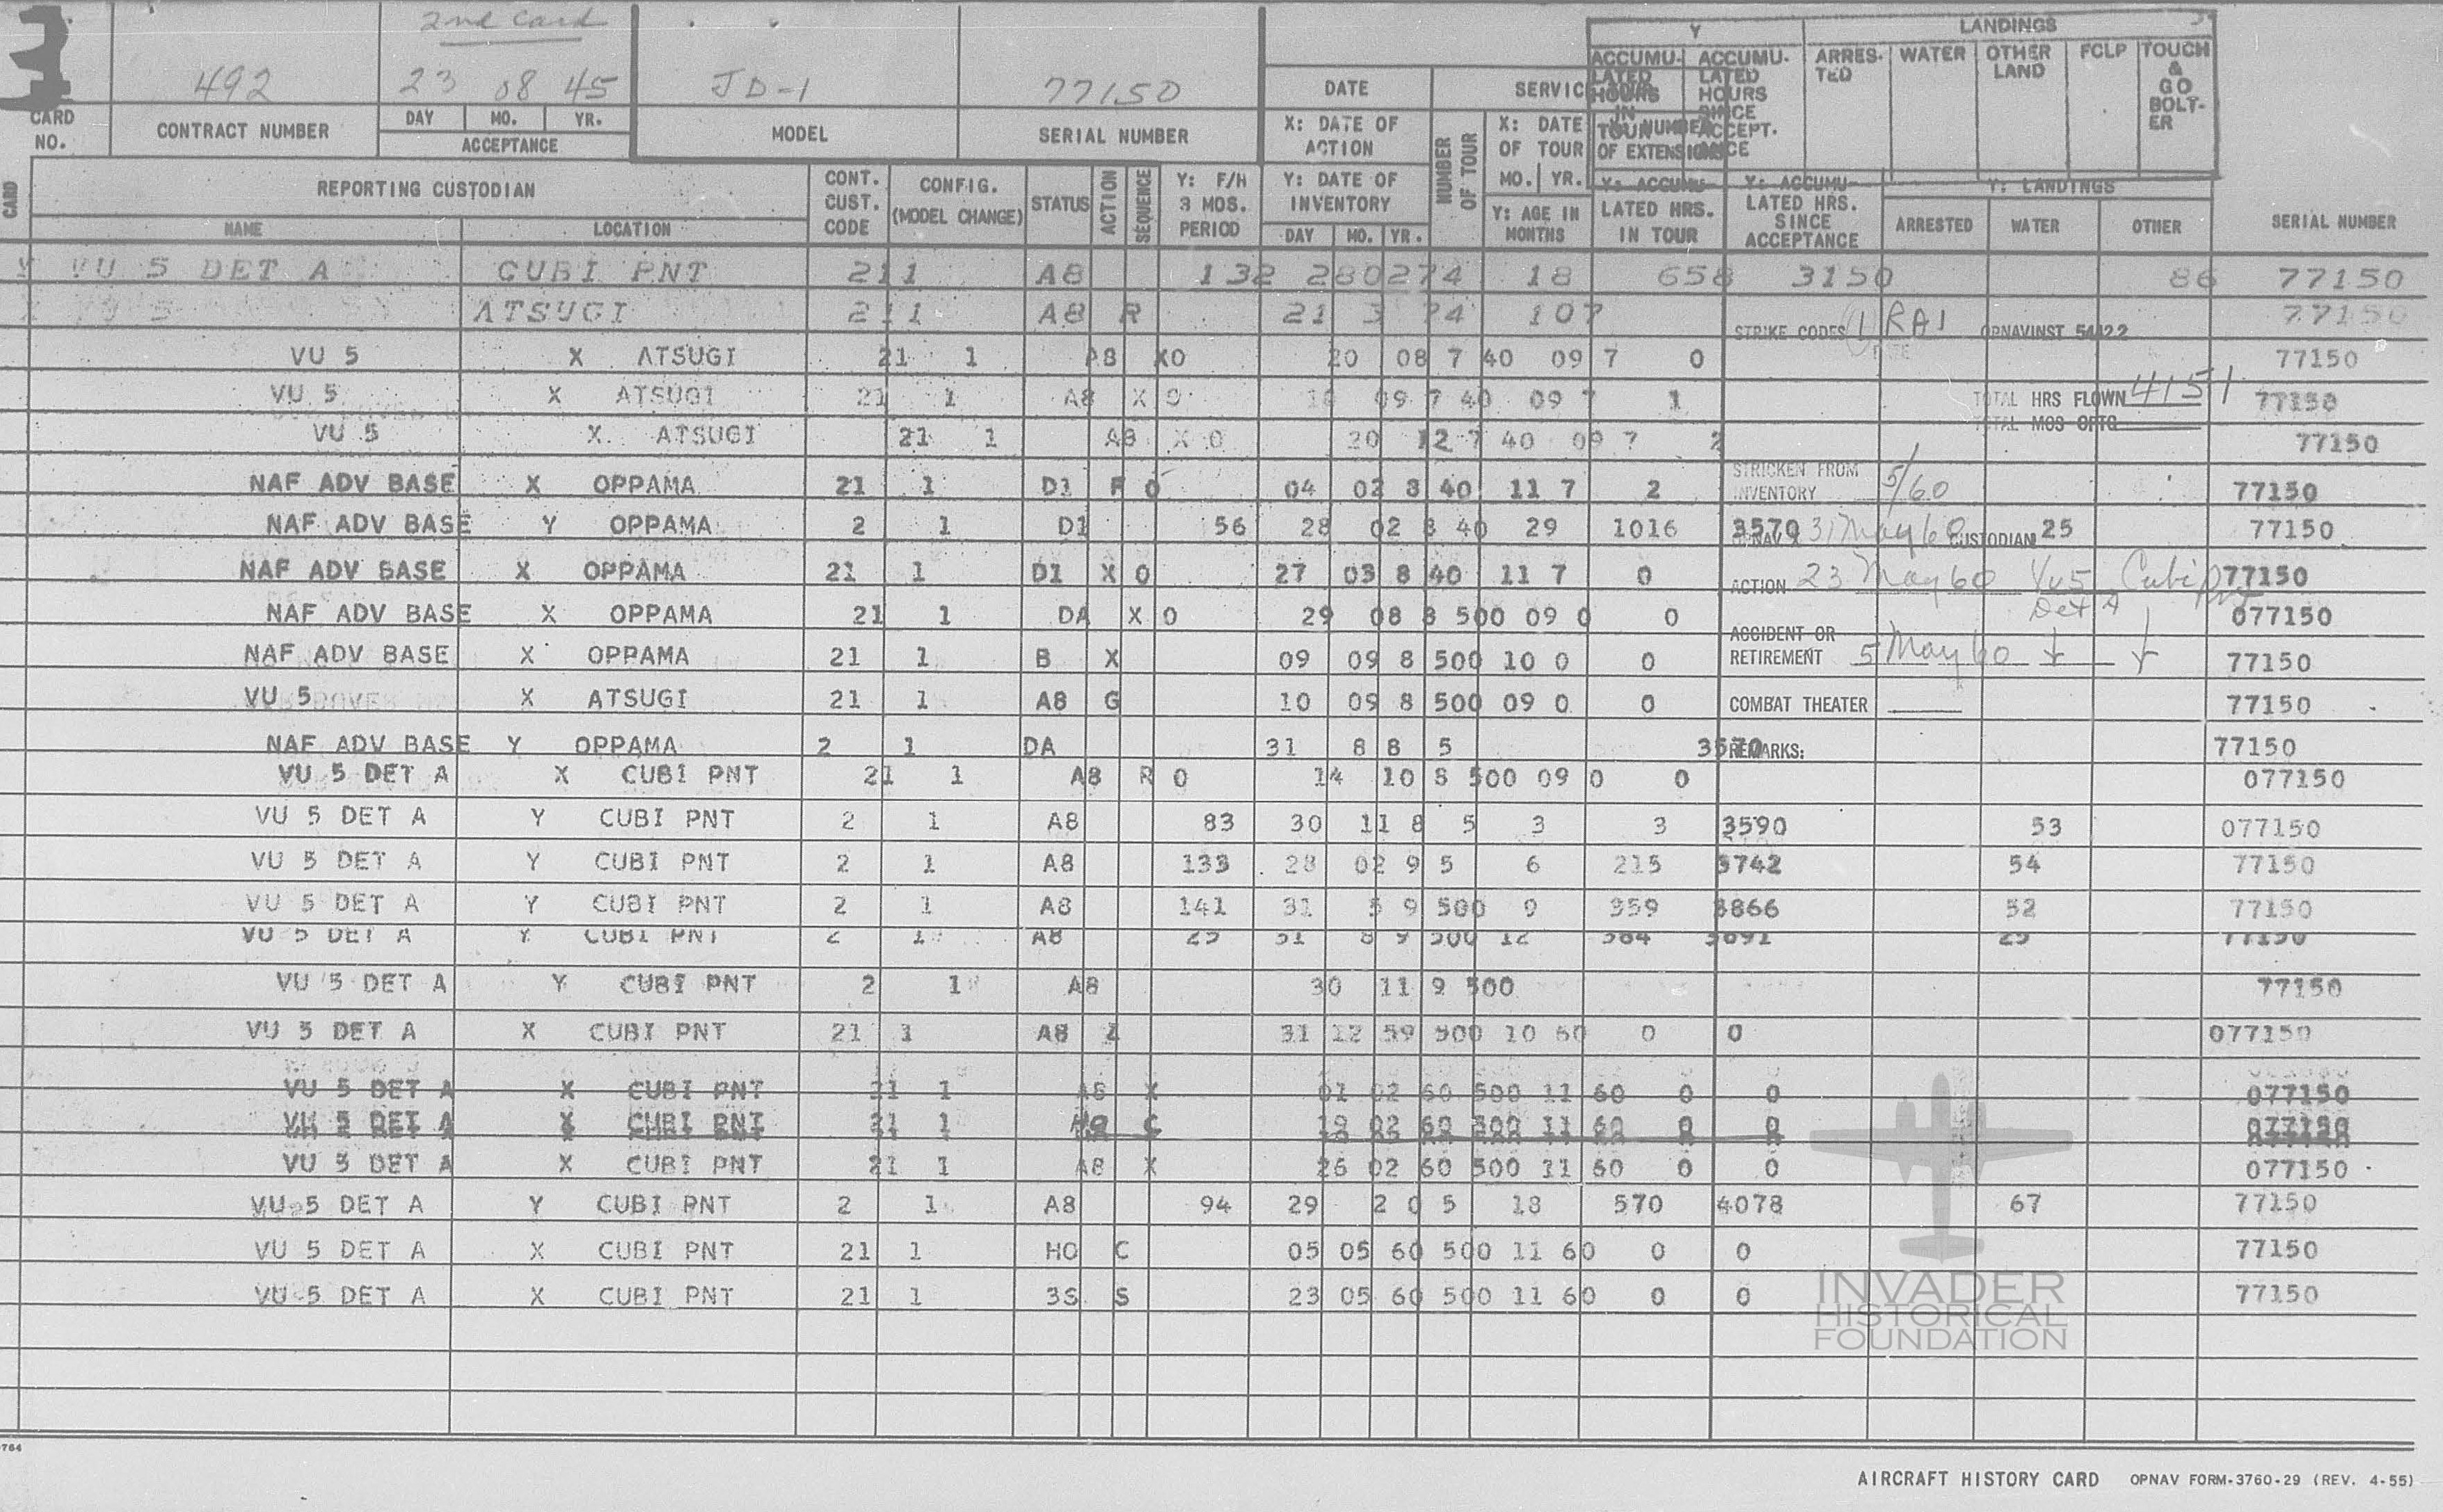 2nd Card
3 492 23 08 45 JD-1 77150
CARD NO. CONTRACT NUMBER DAY MO. YR. ACCEPTANCE MODEL SERIAL NUMBER
DATE SERVICE
X: DATE OF ACTION
Y: DATE OF INVENTORY
DAY MO. YR.
NUMBER OF TOUR
X: DATE OF TOUR
MO. YR.
Y: AGE IN MONTHS
Y
ACCUMU- LATED HOURS IN TOUR
ACCUMU- LATED HOURS SINCE ACCEPT- ANCE
LANDINGS
ARRES- TED WATER OTHER LAND FCLP TOUCH & GO BOLT- ER
NUMBER OF EXTENSIONS
Y: ACCUMU- LATED HRS. IN TOUR
Y: ACCUMU- LATED HRS. SINCE ACCEPTANCE
Y: LANDINGS
ARRESTED WATER OTHER
SERIAL NUMBER
CARD
REPORTING CUSTODIAN
NAME LOCATION
CONT. CUST. CODE
CONFIG. (MODEL CHANGE)
STATUS
ACTION
SEQUENCE
Y: F/H 3 MOS. PERIOD
Y VU 5 DET A CUBI PNT 211 A8 132 280274 18 658 3150 86 77150
X VU 5 ATSUGI 211 A8 R 21 3 74 107 77150
STRIKE CODES 1 RA1 OPNAVINST 5442.2
VU 5 X ATSUGI 21 1 A8 X0 20 08 7 40 09 7 0 77150
VU 5 X ATSUGI 21 1 A8 X 0 09 7 40 09 7 1 77150
TOTAL HRS FLOWN 4151
TOTAL MOS OPTG
VU 5 X ATSUGI 21 1 A8 X 0 20 12 7 40 09 7 2 77150
NAF ADV BASE X OPPAMA 21 1 D1 F 0 04 02 8 40 11 7 2 77150
STRICKEN FROM INVENTORY 5/60
NAF ADV BASE Y OPPAMA 2 1 D1 56 28 02 8 40 29 1016 3570 25 77150
OPNAV 31 May 60 CUSTODIAN
NAF ADV BASE X OPPAMA 21 1 D1 X 0 27 03 8 40 11 7 0 77150
ACTION 23 May 60 VU5 Det A Cubi Pnt
NAF ADV BASE X OPPAMA 21 1 DA X 0 29 08 8 500 09 0 0 077150
NAF ADV BASE X OPPAMA 21 1 B X 09 09 8 500 10 0 0 77150
ACCIDENT OR RETIREMENT 5 May 60
VU 5 X ATSUGI 21 1 A8 G 10 09 8 500 09 0 0 77150
COMBAT THEATER
NAF ADV BASE Y OPPAMA 2 1 DA 31 8 8 5 3570 77150
REMARKS:
VU 5 DET A X CUBI PNT 21 1 A8 R 0 14 10 8 500 09 0 0 077150
VU 5 DET A Y CUBI PNT 2 1 A8 83 30 11 8 5 3 3 3590 53 077150
VU 5 DET A Y CUBI PNT 2 1 A8 133 28 02 9 5 6 215 3742 54 77150
VU 5 DET A Y CUBI PNT 2 1 A8 141 31 5 9 500 9 359 3866 52 77150
VU 5 DET A Y CUBI PNT 2 1 A8 25 31 8 9 500 12 384 3891 25 77150
VU 5 DET A Y CUBI PNT 2 1 A8 30 11 9 500 77150
VU 5 DET A X CUBI PNT 21 1 A8 Z 31 12 59 500 10 60 0 0 077150
VU 5 DET A X CUBI PNT 21 1 A8 X 01 02 60 500 11 60 0 0 077150
VU 5 DET A X CUBI PNT 21 1 C 19 02 60 500 11 60 0 0 077150
VU 5 DET A X CUBI PNT 21 1 A8 X 26 02 60 500 11 60 0 0 077150
VU 5 DET A Y CUBI PNT 2 1 A8 94 29 2 0 5 18 570 4078 67 77150
VU 5 DET A X CUBI PNT 21 1 HO C 05 05 60 500 11 60 0 0 77150
VU 5 DET A X CUBI PNT 21 1 3S S 23 05 60 500 11 60 0 0 77150
INVADER
HISTORICAL
FOUNDATION
764
AIRCRAFT HISTORY CARD OPNAV FORM-3760-29 (REV. 4-55)